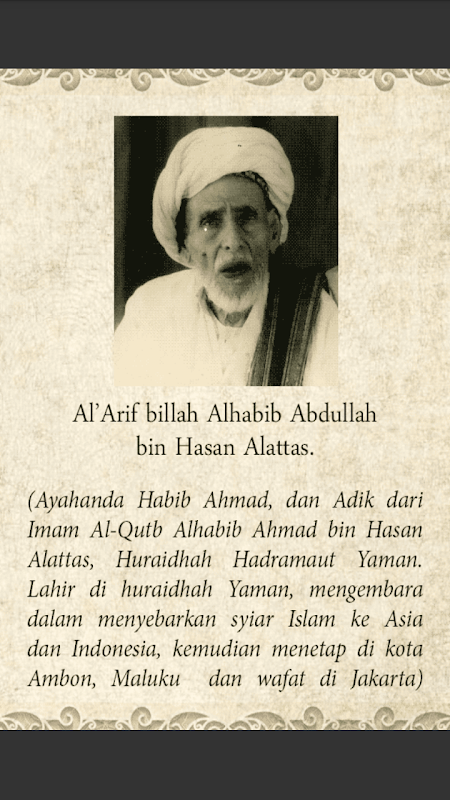 Al'Arif billah Alhabib Abdullah
bin Hasan Alattas.
(Ayahanda Habib Ahmad, dan Adik dari
Imam Al-Qutb Alhabib Ahmad bin Hasan
Alattas, Huraidhah Hadramaut Yaman.
Lahir di huraidhah Yaman, mengembara
dalam menyebarkan syiar Islam ke Asia
dan Indonesia, kemudian menetap di kota
Ambon, Maluku dan wafat di Jakarta)